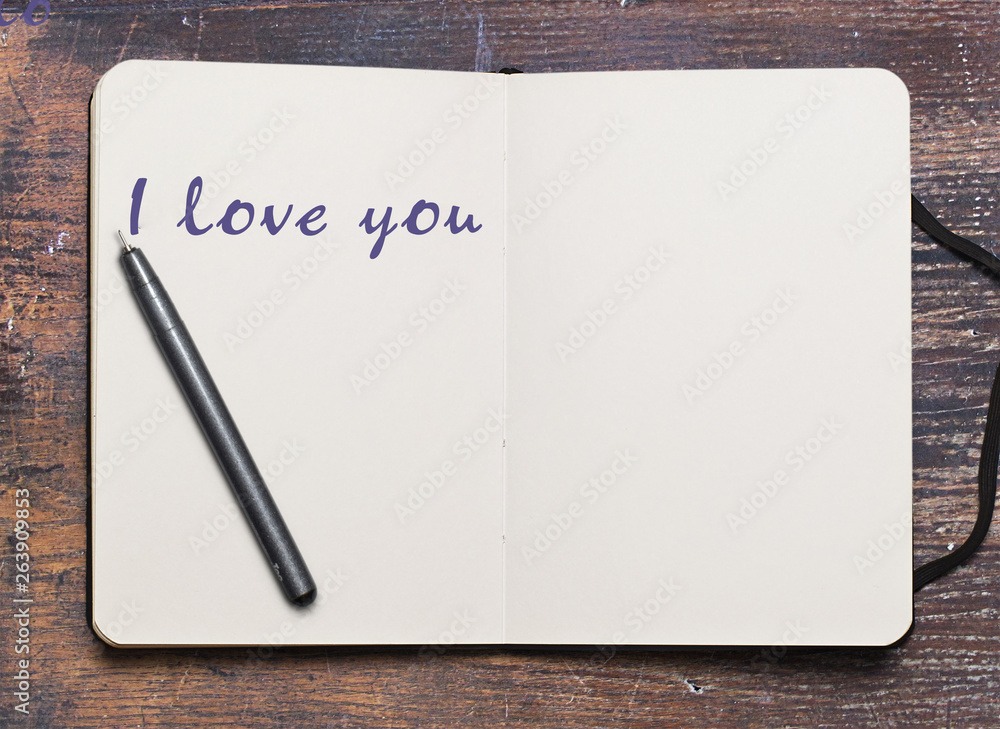 to
I love you
Adobe Stock | #263909853